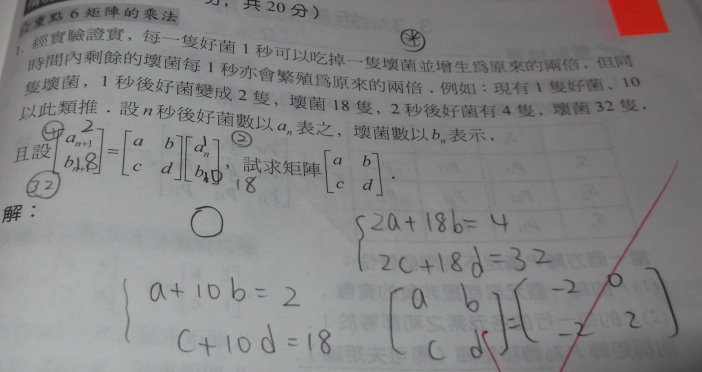 共20分)
重點 6 矩陣的乘法
1. 經實驗證實，每一隻好菌 1 秒可以吃掉一隻壞菌並增生爲原來的兩倍，但同
時間內剩餘的壞菌每 1 秒亦會繁殖爲原來的兩倍．例如：現有 1 隻好菌、10
隻壞菌，1 秒後好菌變成 2 隻，壞菌 18 隻，2 秒後好菌有 4 隻，壞菌 32 隻，
以此類推．設 n 秒後好菌數以 aₙ 表之，壞菌數以 bₙ 表示，
且設 [aₙ₊₁ bₙ₊₁] = [a b c d] [aₙ bₙ]，試求矩陣 [a b c d]．
④ 2 1 ②
18 10 18
㉜
解：
2a+18b=4
2c+18d=32
a+10b=2
c+10d=18
(a b c d)=(-2 0 -2 2)